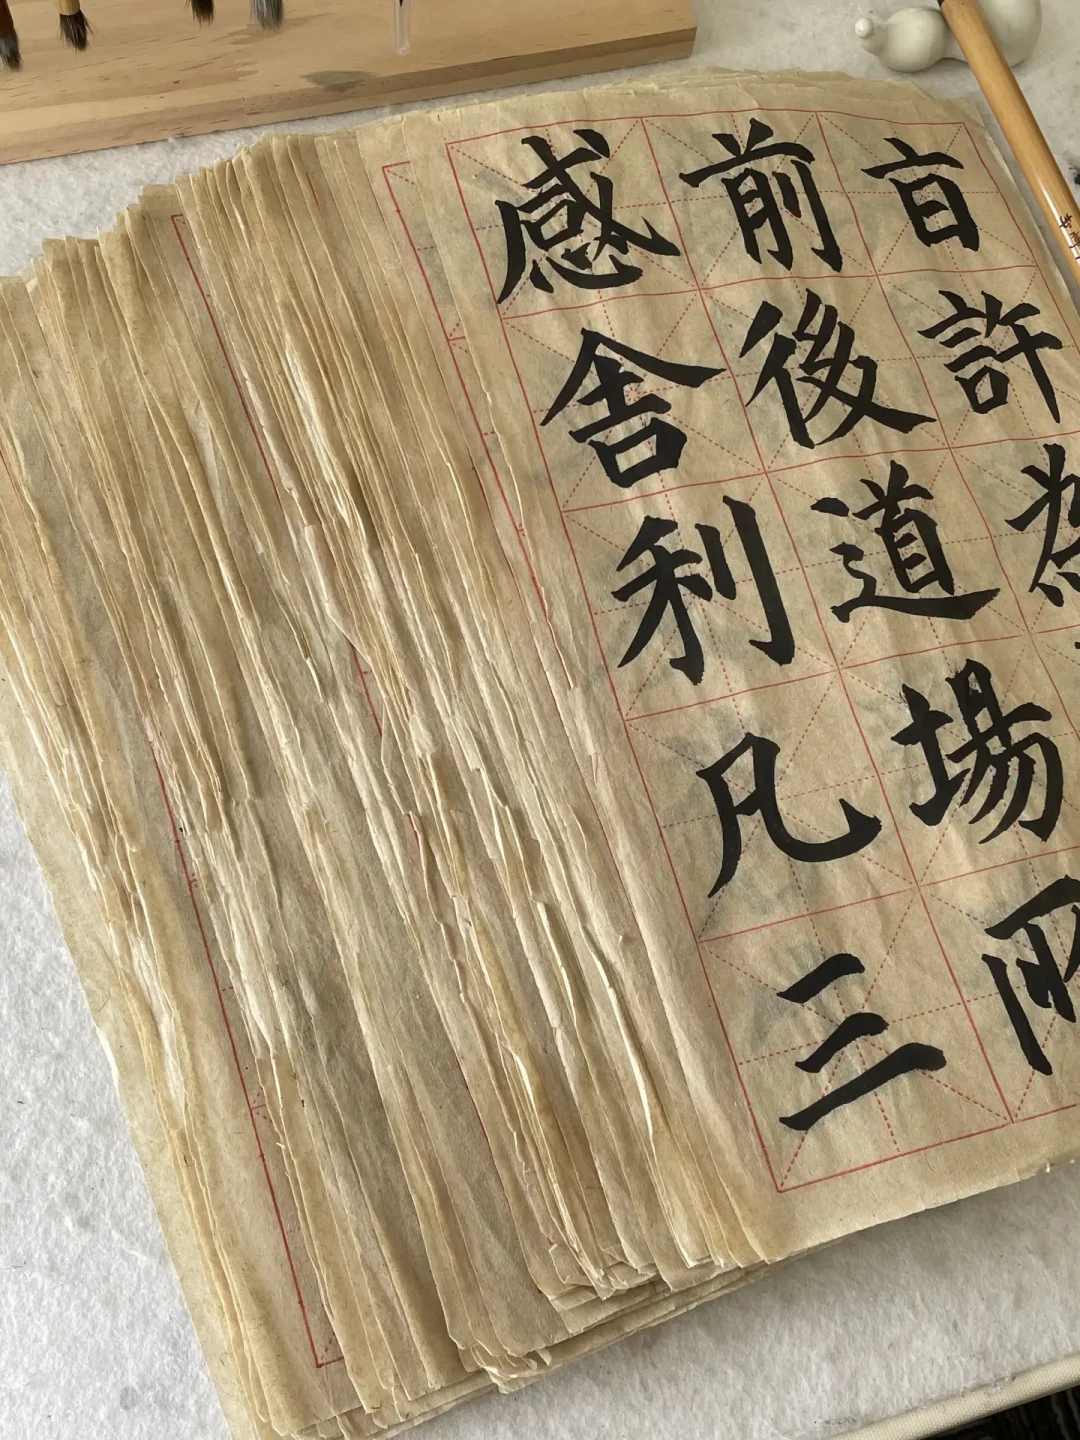 許
前後道場所
感舍利凡三